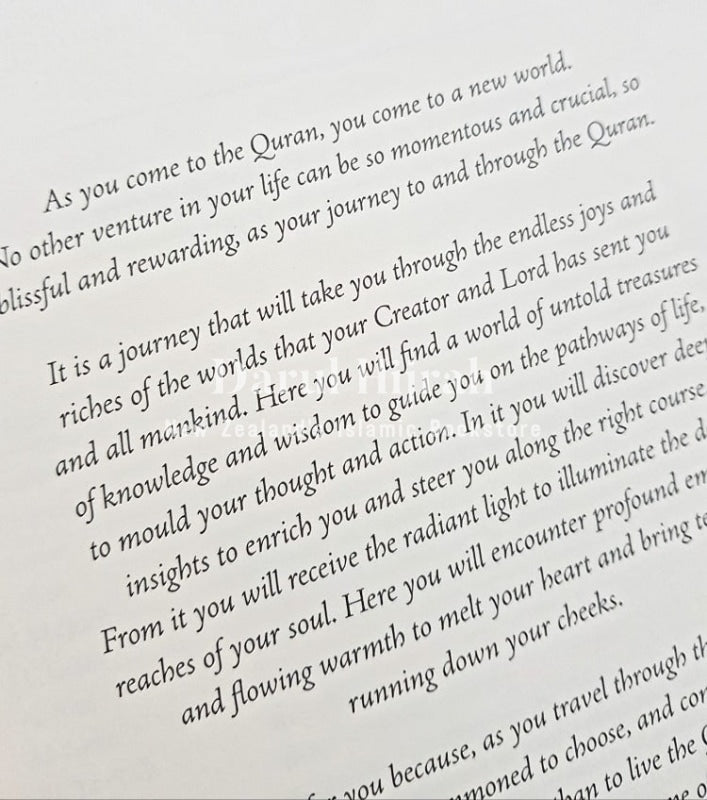 As you come to the Quran, you come to a new world.
No other venture in your life can be so momentous and crucial, so
blissful and rewarding, as your journey to and through the Quran.
It is a journey that will take you through the endless joys and
riches of the worlds that your Creator and Lord has sent you
and all mankind. Here you will find a world of untold treasures
of knowledge and wisdom to guide you on the pathways of life,
to mould your thought and action. In it you will discover
insights to enrich you and steer you along the right course
From it you will receive the radiant light to illuminate the
reaches of your soul. Here you will encounter profound
and flowing warmth to melt your heart and bring
running down your cheeks.
you because, as you travel through
to choose, and
to live the
Darul Hijrah
New Zealand's Islamic Bookstore